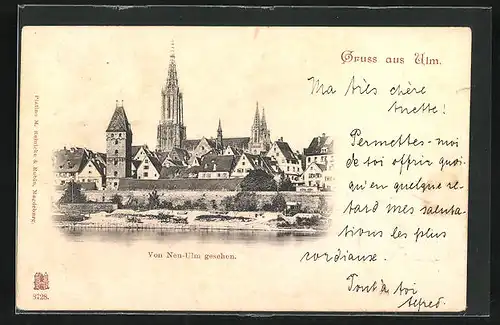 Gruss aus Ulm.
Ma très chère
Annette!
Permettes-moi
de toi offrir quoi-
qu'en quelque re-
tard mes saluta-
tions les plus
cordiaux.
Tout à toi
Alfred.
Von Neu-Ulm gesehen.
Platino M. Reinicke & Rubin, Magdeburg.
3728.